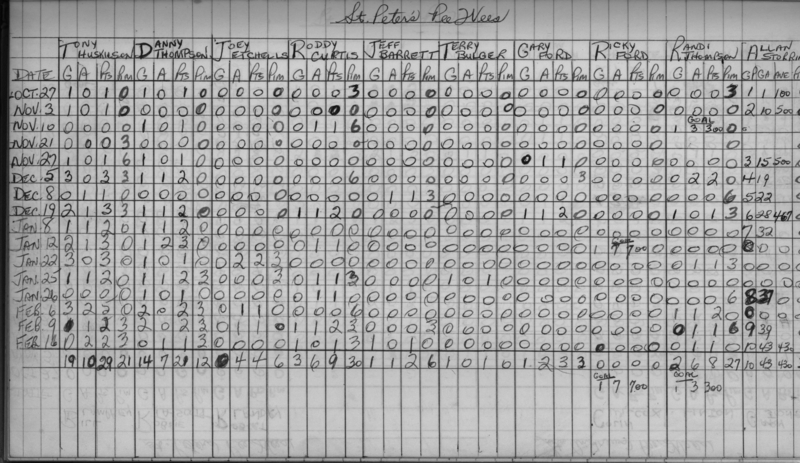 St. Peter's Pee Wees
TONY HUSKUSON DANNY THOMPSON JOEY ETCHELLS RODDY CURTIS JEFF BARRETT TERRY BULGER GARY FORD RICKY FORD RANDI THOMPSON ALLAN
DATE G A Pts Pim G A Pts Pim G A Pts Pim G A Pts Pim G A Pts Pim G A Pts Pim G A Pts Pim G A Pts Pim G A Pts Pim GP GA AVE
OCT. 27 1 0 1 0 1 0 1 0 0 0 0 0 0 0 0 3 0 0 0 0 0 0 0 0 0 0 0 0 0 0 0 0 0 0 0 3 1 1 100
NOV. 3 1 0 1 0 0 0 0 0 0 0 0 0 0 0 0 0 0 0 0 0 0 0 0 0 0 0 0 0 0 0 0 0 0 0 0 0 2 10 500
GOAL
NOV. 10 0 0 0 0 1 0 1 0 0 0 0 0 0 1 1 6 0 0 0 0 0 0 0 0 0 0 0 0 0 0 0 0 1 3 300 0
NOV. 21 0 0 0 3
NOV. 27 1 0 1 6 1 0 1 0 0 0 0 0 0 0 0 0 0 0 0 0 0 0 0 0 0 1 1 0 0 0 0 0 0 0 0 0 3 15 500
DEC. 5 3 0 3 3 1 1 2 0 0 0 0 0 0 0 0 6 0 0 0 0 0 0 0 0 0 0 0 3 0 0 0 0 0 2 2 0 4 19
DEC. 8 0 1 1 0 0 0 0 0 0 0 0 0 0 0 0 0 0 1 1 3 0 0 0 0 0 0 0 0 0 0 0 0 0 0 0 6 5 22
DEC. 19 2 1 3 3 1 1 2 0 0 0 0 0 1 1 2 0 0 0 0 0 0 0 0 0 1 1 2 0 0 0 0 0 1 0 1 3 6 28 467
JAN. 8 1 1 2 0 1 1 2 0 7 32
GOAL
JAN. 12 2 1 3 0 1 2 3 0 0 0 0 0 0 1 1 0 0 0 0 0 0 0 0 0 0 0 0 0 1 7 700
JAN. 22 3 0 3 0 1 0 1 0 0 2 2 3 0 0 0 0 0 0 0 0 0 0 0 0 0 0 0 0 0 0 0 0 0 1 1 3 0 0
JAN. 25 1 1 2 0 1 1 2 3 0 0 0 3 0 1 1 3 0 0 0 0 1 0 1 0 0 0 0 0 0 0 0 0 0 0 0 0
JAN. 26 0 0 0 0 1 0 1 0 0 0 0 0 0 1 1 0 0 0 0 0 0 0 0 0 0 0 0 0 0 0 0 0 0 0 0 6 8 37
FEB. 6 3 2 2 0 2 0 2 3 0 1 1 0 0 0 0 6 0 0 0 0 0 0 0 0 0 0 0 0 0 0 0 0 1 1 2 0
FEB. 9 1 2 3 2 0 2 3 0 1 1 0 1 1 2 3 0 0 0 3 0 0 0 0 0 0 0 0 0 0 0 0 0 1 1 6 9 39
FEB. 16 0 2 2 3 0 1 1 3 0 0 0 0 1 0 1 3 1 0 1 0 0 0 0 0 0 0 0 0 0 0 0 0 0 1 1 0 10 43 430
19 10 29 21 14 7 21 12 0 4 4 6 3 6 9 30 1 1 2 6 1 0 1 0 1 2 3 3 0 0 0 0 2 6 8 27 10 43 430
GOAL GOAL
1 7 700 1 3 300